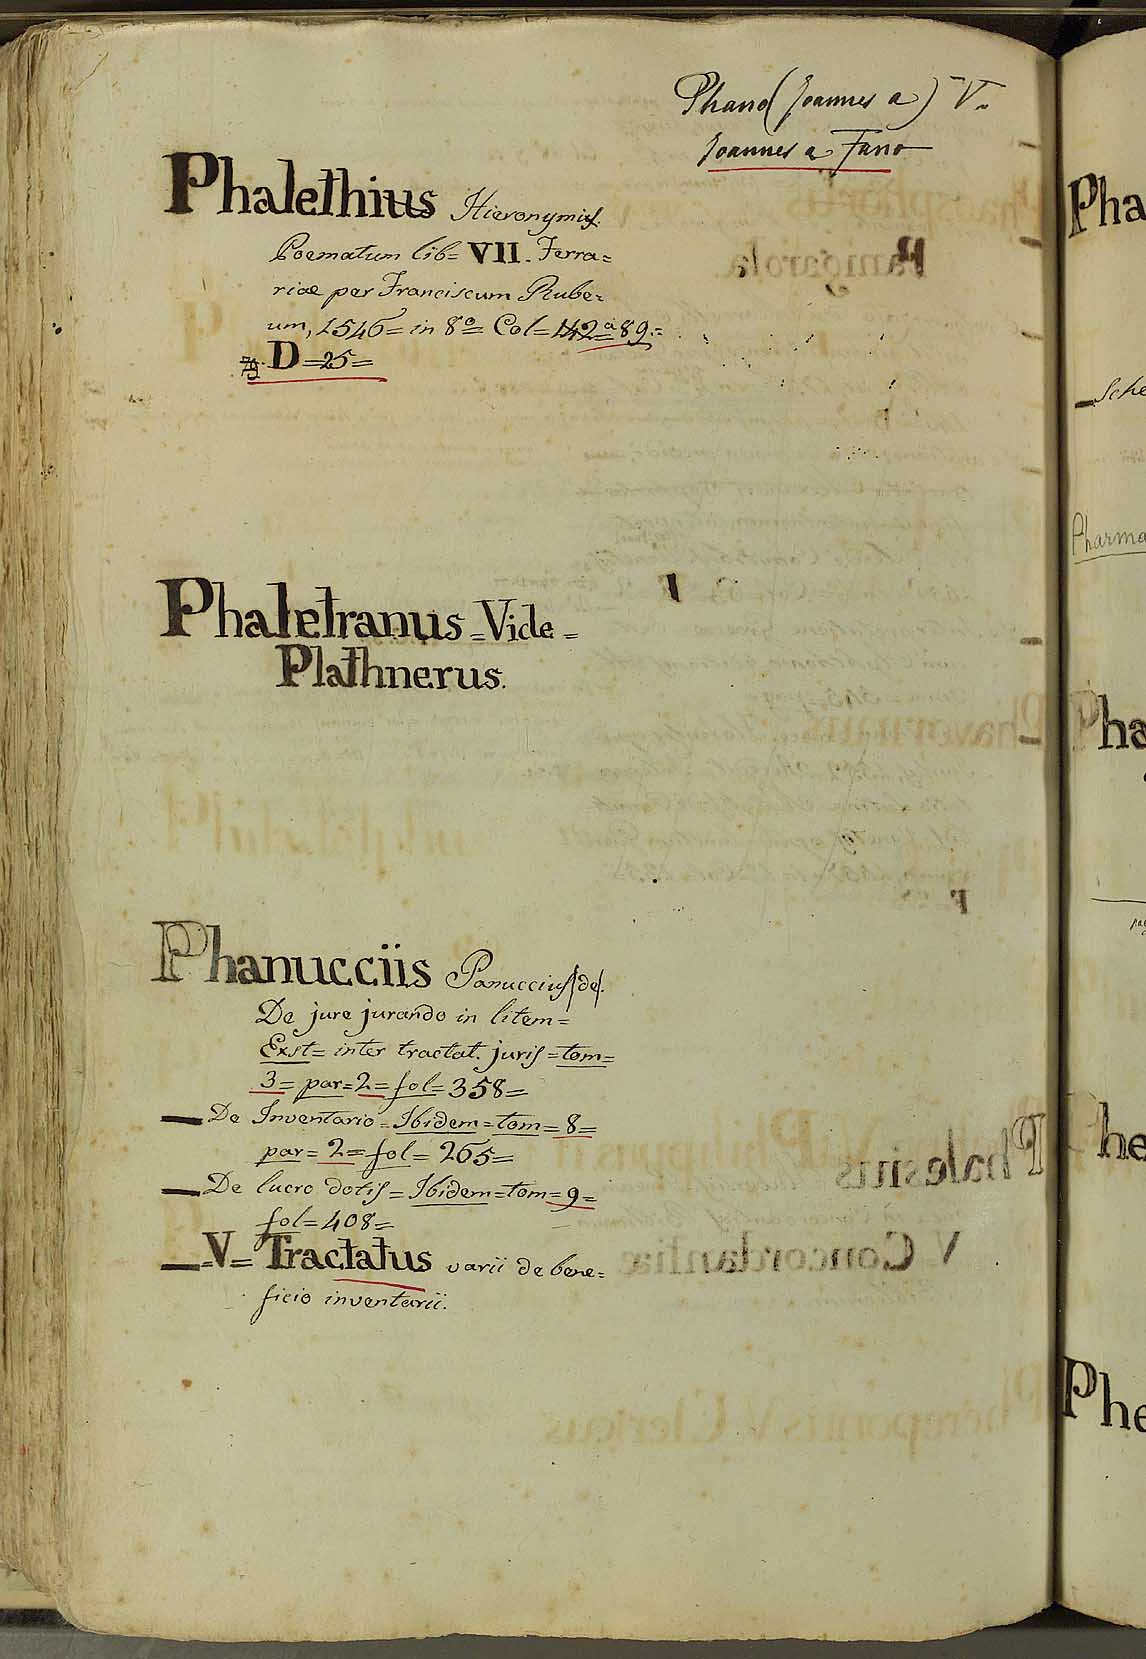 Phano (Joannes a) V.
Joannes a Fano
Phalethius Hieronymus.
Poematum lib= VII. Ferra=
riae per Franciscum Rube=
um, 1546= in 8º= Col=
D=25=
Phaletranus=Vide=
Plathnerus.
Phanucciis Panuccius (de).
De jure jurando in litem=
Exst= inter tractat. juris=tom=
3= par=2= fol=358=
De Inventario=Ibidem=tom=8=
par= 2= fol= 265=
De lucro dotis=Ibidem=tom=9=
fol=408=
=V= Tractatus varii de bene=
ficio inventarii.
Pha
Sche
Pharma
Pha
Phe
Phe